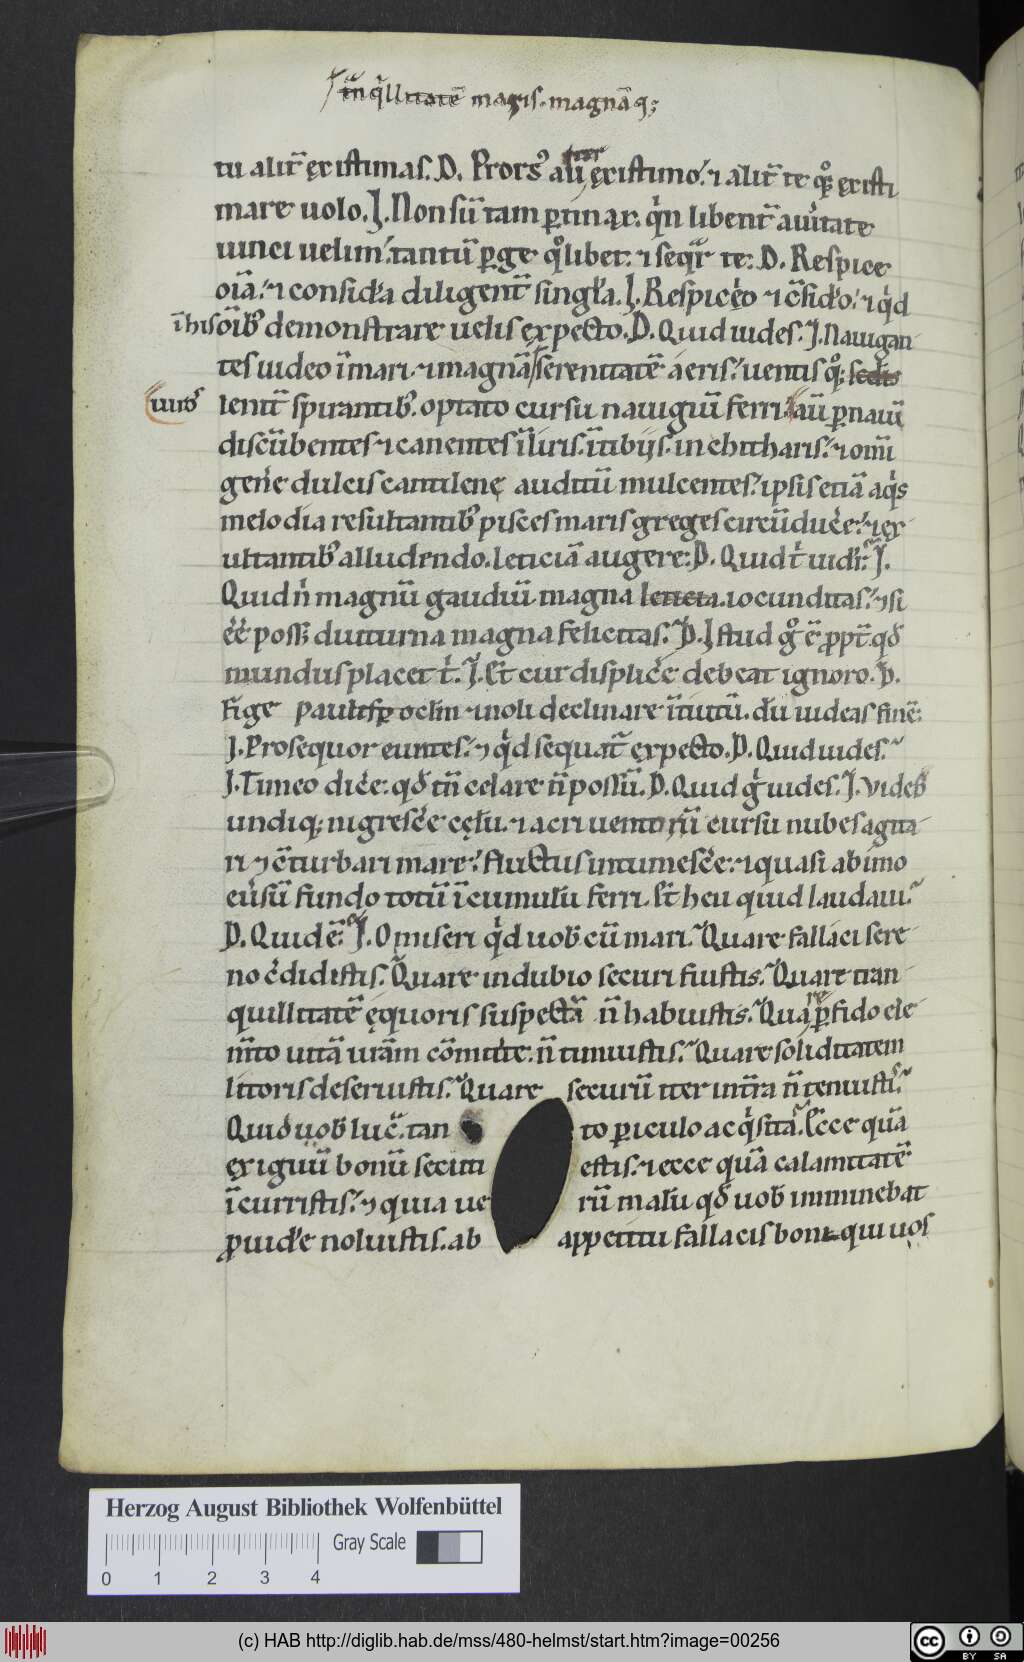 tnq̄llitatē maris. magnāq;
tu alit̄ ęxistimas. D. Prors᾽ aliť ęxistimo. ⁊ alit̄ te qͦꝫ ęxisti
mare uolo. J. Non sū tam ꝑtinax. qͥn libent̄ aūitate
uinci uelim. tantū ꝑge qͦlibet. ⁊ seqͬ te. D. Respice
oīa. ⁊ consid̓a diligent̄ singl̓a. J. Respicęo ⁊ c̄sid̓o. ⁊ qͥd
ī his oīb᾽ demonstrare uelis ęxpecto. D. Quid uides. J. Nauigan
tes uideo ī mari. ⁊ magnā serenitatē aeris. uentis qͦꝫ
uirib᾽ lenit̄ spirantib᾽. optato cursu nauigiū ferri. aū ꝑ nauī
discūbentes ⁊ canentes ī liris. ī tibiis. in chitharis. ⁊ omī
gen̄e dulcis cantilenę auditū mulcentes. ipsis etiā aqͥs
melodia resultantib᾽ pisces maris greges circūduc̄e. ⁊ ex
ultantib᾽ alludendo. leticiā augere. D. Quid t̄ uidr̄. J.
Quid n̄ magnū gaudiū magna leticia. iocunditas. ⁊ si
ēē poss; diuturna magna felicitas. D. Istud gͦ ē ꝓpt̄. qd̄
mundus placet t̄. J. Et cur displic̄e debeat ignoro. D.
Fige paulisꝑ oclm̄ ⁊ noli declinare ītuitū. dū uideas finē.
J. Prosequor euntes. ⁊ qͥd sequat̄ ęxpecto. D. Quid uides.
J. Timeo dic̄e. qd̄ tn̄ celare n̄ possū. D. Quid gͥ uides. J. Video
undiq; nigresc̄e cęlū. ⁊ acri uentorū cursu nubes agita
ri ⁊ c̄turbari mare. fluctus intumesc̄e. ⁊ quasi ab imo
eūsū fundo totū ī cumulū ferri. Et heu quid laudaui.
D. Quid ē. J. O miseri qͥd uob̄ cū mari. Quare fallaci sere
no c̄didistis. Quare in dubio securi fuistis. Quare tran
quillitatē ęquoris suspectā n̄ habuistis. Quare ꝑfido ele
m̄to uitā urām cōmitt̄e n̄ timuistis. Quare soliditatem
litoris deseruistis. Quare securū iter int̄ra n̄ tenuistis.
Quid uob̄ luc̄. tan to ꝑiculo acqͥsitā. Ecce quā
exiguū bonū secuti estis. ⁊ ecce quā calamitatē
īcurristis. ⁊ quia ue rū malū qd̄ uob̄ imminebat
ꝓuid̓e noluistis. ab appetitu fallacis boni qui uos
Herzog August Bibliothek Wolfenbüttel
Gray Scale
0 1 2 3 4
(c) HAB http://diglib.hab.de/mss/480-helmst/start.htm?image=00256
cc BY SA